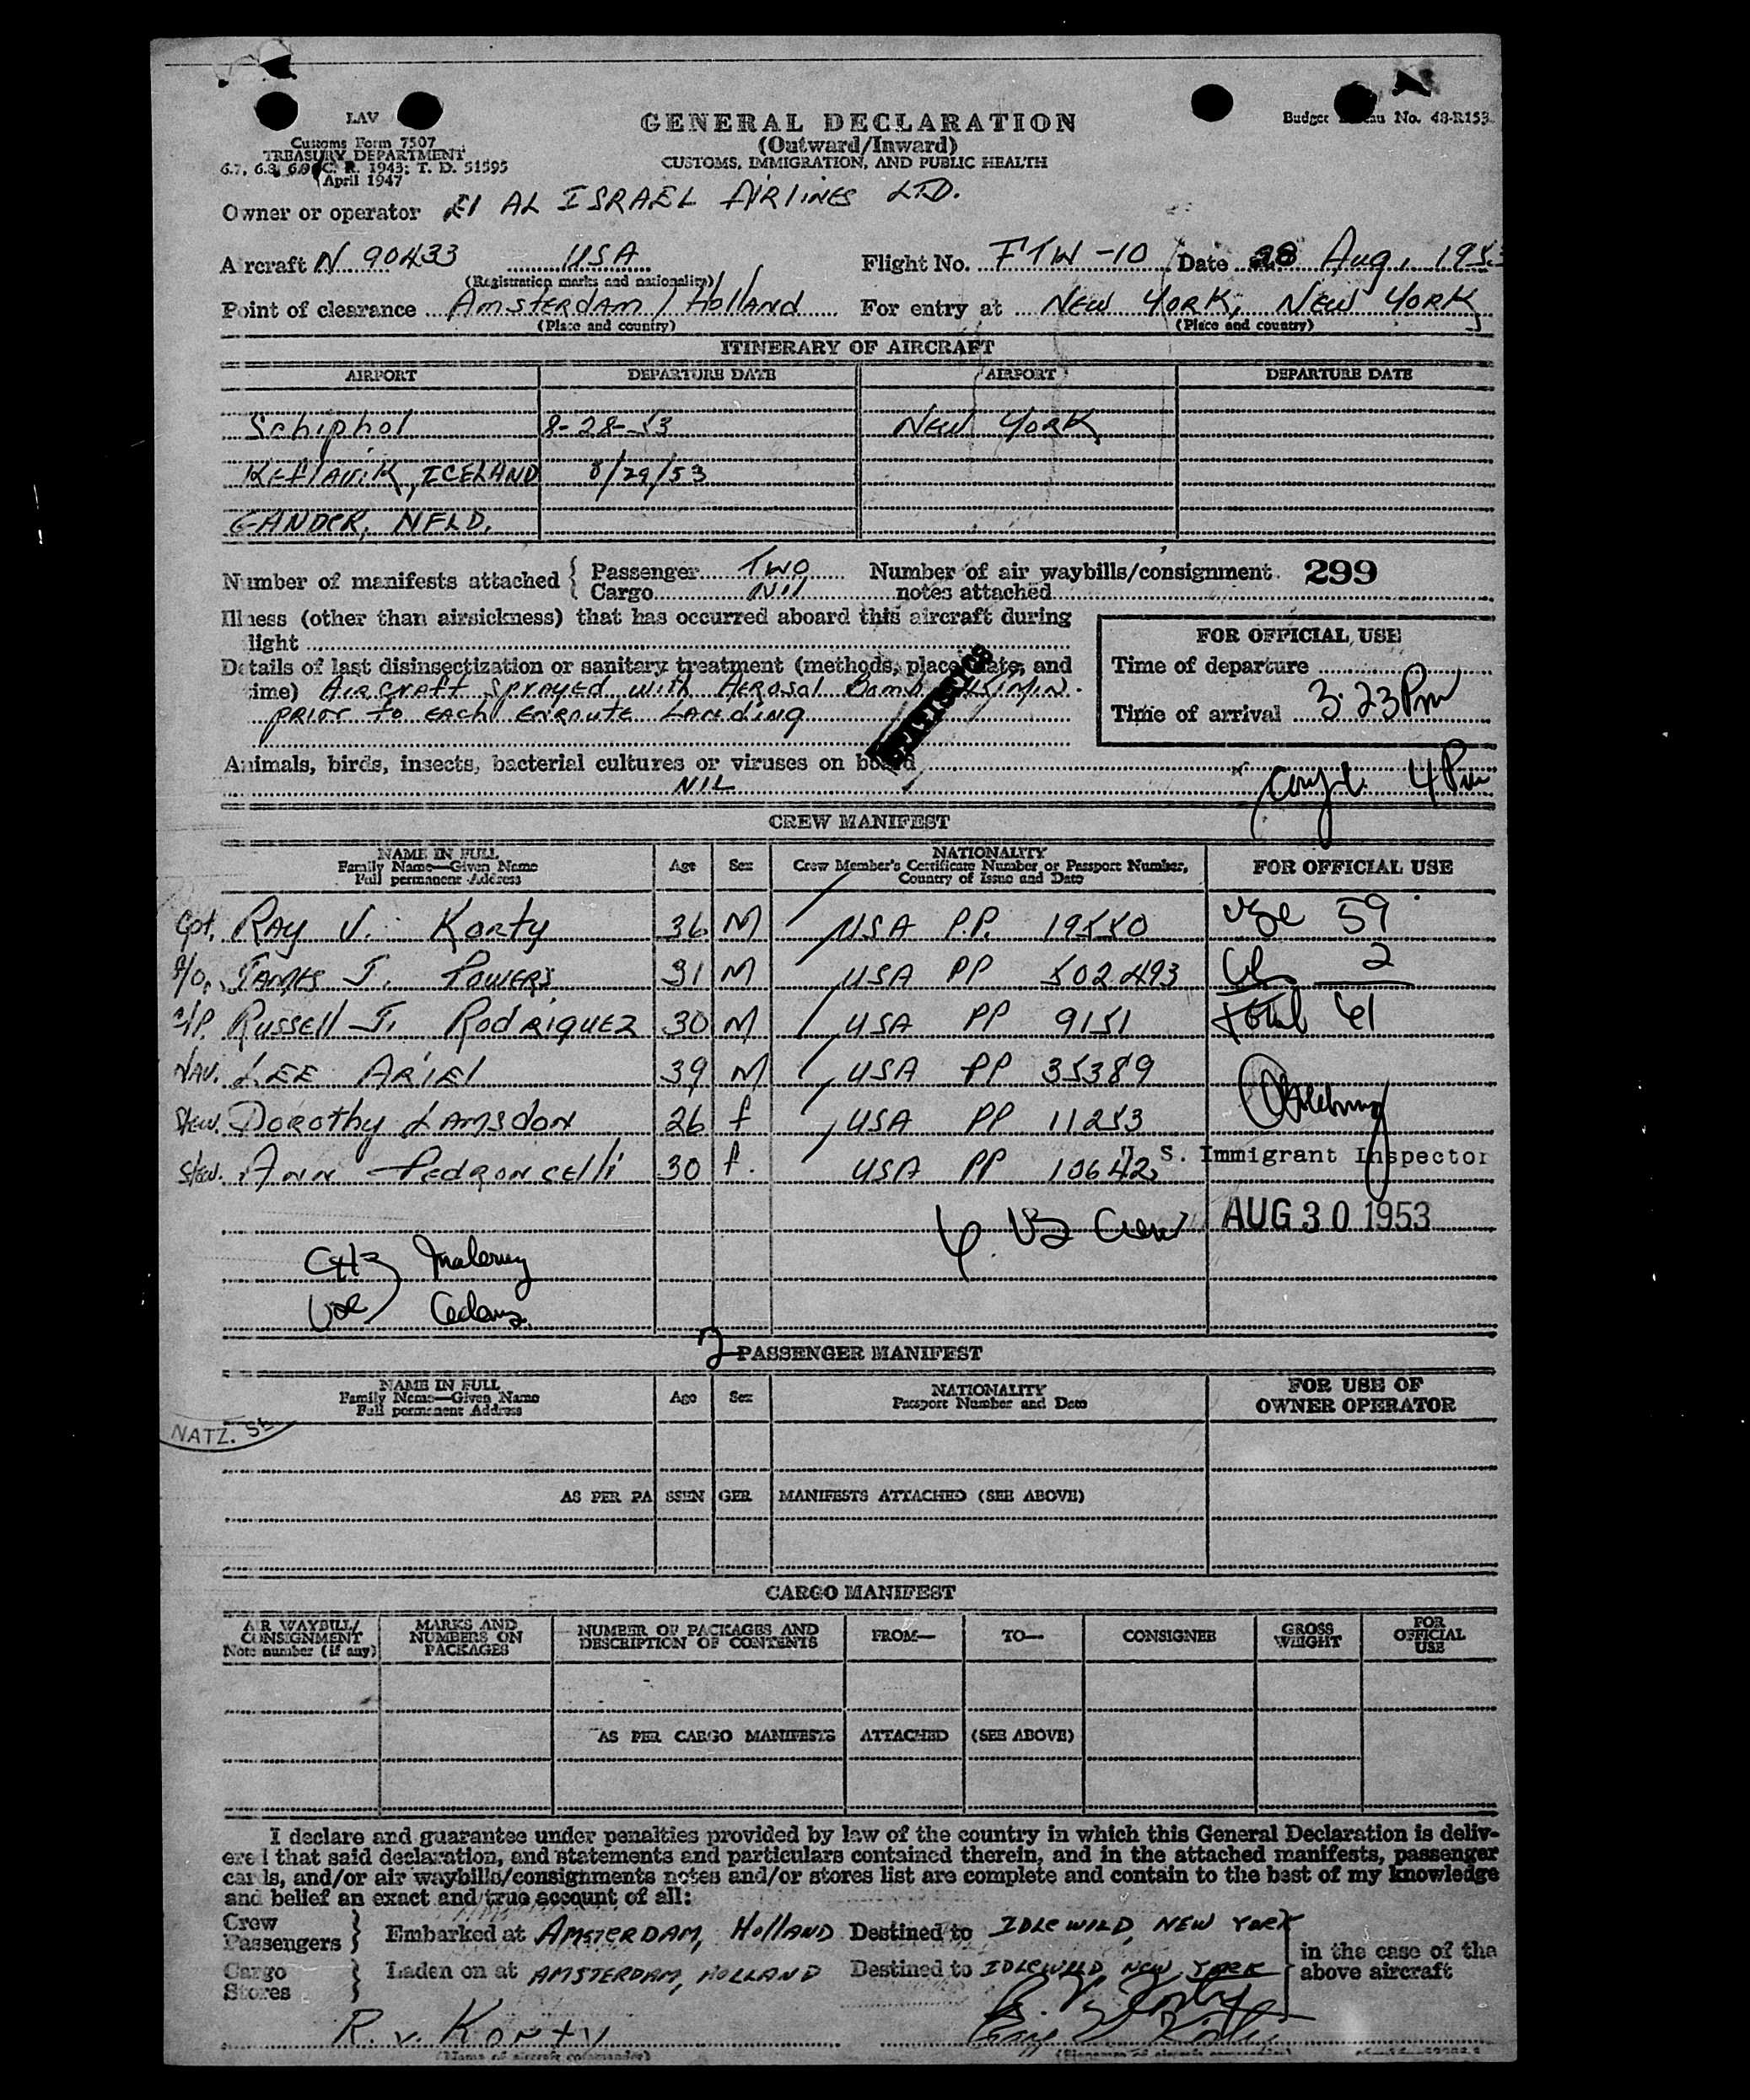 LAV
Customs Form 7507
TREASURY DEPARTMENT
6.7, 6.8, 6.9 C. R. 1943; T. D. 51595
April 1947
GENERAL DECLARATION
(Outward/Inward)
CUSTOMS, IMMIGRATION, AND PUBLIC HEALTH
Budget No. 48-R153
Owner or operator El AL ISRAEL AIRLINES LTD.
Aircraft N 90433 USA Flight No. FTW-10 Date 28 Aug, 1953
(Registration marks and nationality)
Point of clearance Amsterdam / Holland For entry at NEW YORK, NEW YORK
(Place and country) (Place and country)
ITINERARY OF AIRCRAFT
AIRPORT DEPARTURE DATE AIRPORT DEPARTURE DATE
Schiphol 8-28-53 NEW YORK
KEFLAVIK, ICELAND 8/29/53
GANDER, NFLD.
Number of manifests attached { Passenger TWO Number of air waybills/consignment 299
Cargo Nil notes attached
Illness (other than airsickness) that has occurred aboard this aircraft during
light
FOR OFFICIAL USE
Details of last disinsectization or sanitary treatment (methods, place, date, and
Time of departure
time) Aircraft sprayed with Aerosol Bomb MIN.
STATISTICS
prior to each enroute landing
Time of arrival 3:23 Pm
Animals, birds, insects, bacterial cultures or viruses on board
NIL
4 Pm
CREW MANIFEST
NAME IN FULL
Family Name—Given Name
Full permanent Address
Age Sex
NATIONALITY
Crew Member's Certificate Number or Passport Number,
Country of Issue and Date
FOR OFFICIAL USE
Cpt. RAY V. Korty 36 M USA P.P. 19550 59
F/O. JAMES J. POWERS 31 M USA PP 502493 2
C/P. Russell J. RODRIQUEZ 30 M USA PP 9151 total 61
NAV. LEE ARIEL 39 M USA PP 35389
Stew. Dorothy LAMSDON 26 f USA PP 11253
Stew. ANN PEDRONCELLI 30 f. USA PP 10642
U S. Immigrant Inspector
6 Crew
AUG 30 1953
2
PASSENGER MANIFEST
NAME IN FULL
Family Name—Given Name
Full permanent Address
Age Sex
NATIONALITY
Passport Number and Date
FOR USE OF
OWNER OPERATOR
NATZ. SE
AS PER PASSENGER MANIFESTS ATTACHED (SEE ABOVE)
CARGO MANIFEST
AIR WAYBILL/
CONSIGNMENT
Note number (if any)
MARKS AND
NUMBERS ON
PACKAGES
NUMBER OF PACKAGES AND
DESCRIPTION OF CONTENTS
FROM— TO— CONSIGNEE
GROSS
WEIGHT
FOR
OFFICIAL
USE
AS PER CARGO MANIFESTS ATTACHED (SEE ABOVE)
I declare and guarantee under penalties provided by law of the country in which this General Declaration is deliv-
ered that said declaration, and statements and particulars contained therein, and in the attached manifests, passenger
cards, and/or air waybills/consignments notes and/or stores list are complete and contain to the best of my knowledge
and belief an exact and true account of all:
Crew
Passengers } Embarked at AMSTERDAM, Holland Destined to IDLEWILD, NEW YORK
in the case of the
above aircraft
Cargo
Stores } Laden on at AMSTERDAM, HOLLAND Destined to IDLEWILD NEW YORK
R. V. Korty
(Name of aircraft commander) (Signature of aircraft commander)